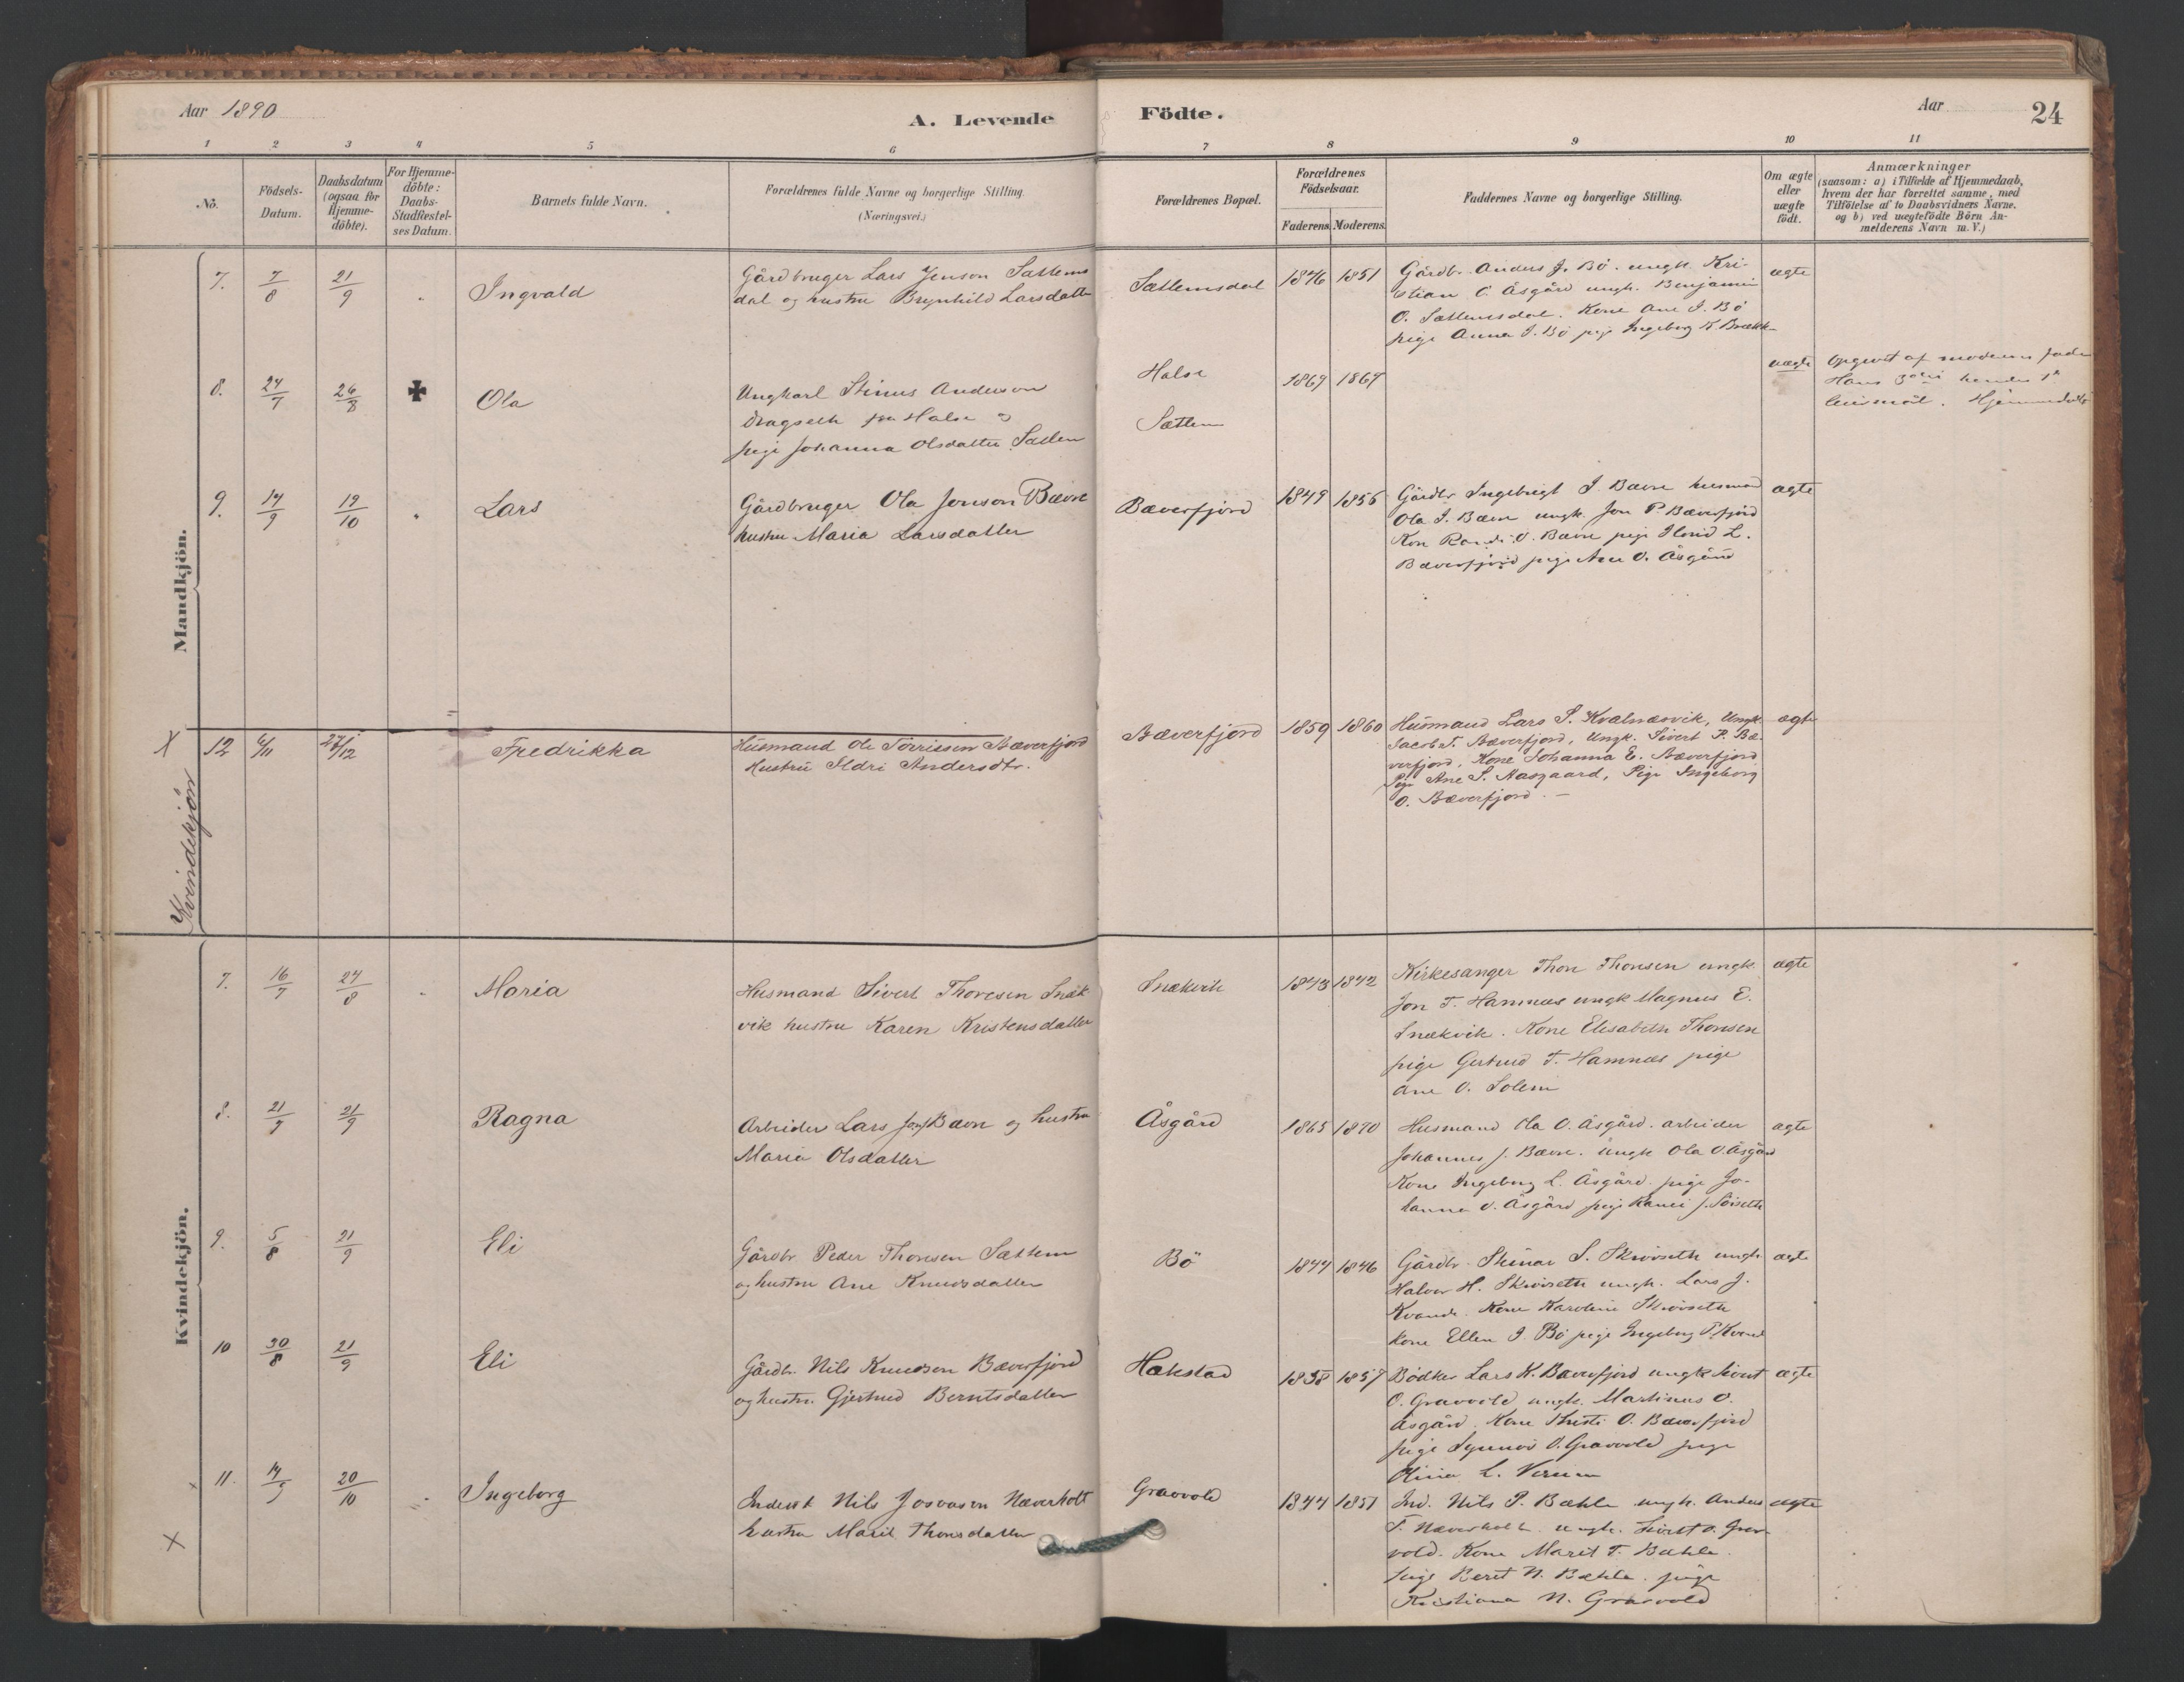 Aar 1890
A. Levende
Födte.
Aar
24
1 2 3 4 5 6 7 8 9 10 11
No.
Födsels-
Datum.
Daabsdatum
(ogsaa for
Hjemme-
döbte).
For Hjemme-
döbte:
Daabs-
Stadfæstel-
ses Datum.
Barnets fulde Navn.
Forældrenes fulde Navne og borgerlige Stilling.
(Næringsvei.)
Forældrenes Bopæl.
Forældrenes
Födselsaar.
Faderens. Moderens.
Faddernes Navne og borgerlige Stilling.
Om ægte
eller
uægte
födt.
Anmærkninger
(saasom: a) i Tilfælde af Hjemmedaab,
hvem der har forrettet samme, med
Tilföielse af to Daabsvidners Navne,
og b) ved uægtefödte Börn An-
melderens Navn m. V.)
Mandkjön.
7. 7/8 21/9 Ingvald
Gårdbruger Lars Jenson Sættems
dal og hustru Brynhild Larsdatter
Sættemsdal 1846 1851
Gårdbr. Anders J. Bö. ungk. Kri-
stian O. Åsgård ungk. Benjamin
O. Sættemsdal. Kone Ane I. Bö
pige Anna I. Bö pige Ingeborg K. Brækk
ægte
8. 24/7 26/8 Ola
Ungkarl Stinus Anderson
Dragseth fra Halse og
pige Johanna Olsdatter Sættem
Halse
Sættem
1869 1869
uægte
Opgivet af moderens fader
Hans 3die hendes 1te
leiermål. Hjemmedøbt
9. 14/9 19/10 Lars
Gårdbruger Ola Jonson Bævre
hustru Maria Larsdatter
Bæverfjord 1849 1856
Gårdbr Ingebrigt I. Bævre husmand
Ola I. Bævre ungk. Jon P. Bæverfjord
Kone Randi O. Bævre pige L.
Bæverfjord pige Ane O. Åsgård
ægte
Kvindekjön
X 12 6/11 27/12 Fredrikka
Husmand Ole Torriesen Bæverfjord
Hustru Ildri Andersdtr.
Bæverfjord 1859 1860
Husmand Lars S. Kvalnæsvik, Ungk.
Jacob T. Bæverfjord, Ungk. Sivert P. Bæ-
verfjord, Kone Johanna E. Bæverfjord
Pige Ane S. Aasgaard, Pige Ingeborg
O. Bæverfjord. —
ægte
Kvindekjön.
7. 16/7 24/8 Maria
Husmand Sivert Thoresen Snæk
vik hustru Karen Kristensdatter
Snækvik 1843 1842
Kirkesanger Thon Thonsen ungk.
Jon T. Hamnæs ungk Magnus E.
Snækvik. Kone Elisabeth Thonsen
pige Gertrud T. Hamnæs pige
Ane O. Solem
ægte
8. 21/7 21/9 Ragna
Arbeider Lars Jons Bævre og hustru
Maria Olsdatter
Åsgård 1865 1870
Husmand Ola O. Åsgård. arbeider
Johannes J. Bævre. ungk Ola O. Åsgård
Kone Ingeborg L. Åsgård. pige Jo-
hanna O. Åsgård pige J. Söiseth
ægte
9. 5/8 21/9 Eli
Gårdbr Peder Thoresen Sættem
og hustru Ane Knudsdatter
Bö 1844 1846
Gårdbr. Steinar S. Skövseth ungk.
Halvor H. Skövseth ungk. Lars J.
Kvande. Kone Karoline Skövseth
Kone Ellen I. Bö pige Ingeborg P. Kvand
ægte
10 30/8 21/9 Eli
Gårdbr. Nils Knudson Bæverfjord
og hustru. Gjertrud Berntsdatter
Hækstad 1838 1857
Bødker Lars K. Bæverfjord ungk Sivert
O. Gravvold ungk. Martinus O.
Åsgård. Kone Kristi O. Bæverfjord
pige Synnöv O. Gravvold pige
L.
ægte
11. 14/9 20/10 Ingeborg
Inderst Nils Josvason Næverholt
hustru Marit Thorsdatter
Gravvold 1844 1851
Ind. Nils P. Bæhle ungk. Anders
T. Næverholt. ungk. Sivert O. Grav-
vold. Kone Marit T. Bæhle.
pige Beret N. Bæhle. pige
Kristiana N. Gravvold
ægte
X